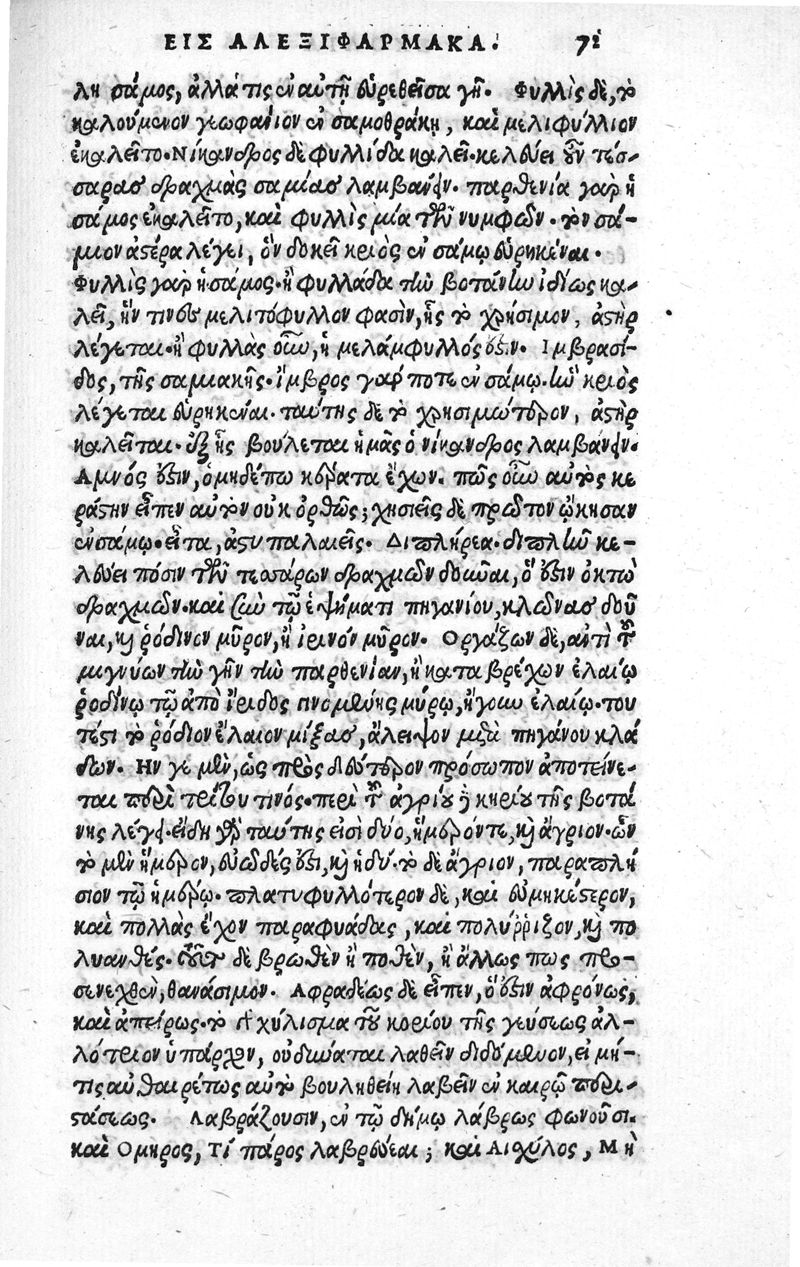 ΕΙΣ ΑΛΕΞΙΦΑΡΜΑΚΑ. 71
λη σάμος, ἀλλά τις ἐν αὐτῇ εὑρεθεῖσα γῆ. Φυλλὶς δὲ, τὸ
καλούμενον γεωφαίιον ἐν σαμοθράκῃ, καὶ μελιφύλλιον
ἐκαλεῖτο. Νίκανδρος δὲ φυλλίδα καλεῖ. κελεύει οὖν τέσ-
σαρας δραχμὰς σαμίας λαμβάνειν. παρθενία γὰρ ἡ
σάμος ἐκαλεῖτο, καὶ φυλλὶς μία τῶν νυμφῶν. τὸν σά-
μιον ἀστέρα λέγει, ὃν δοκεῖ κριὸς ἐν σάμῳ εὑρηκέναι.
Φυλλὶς γὰρ ἡ σάμος. ἢ φυλλάδα τὴν βοτάνην ἰδίως κα-
λεῖ, ἥν τινες μελιτόφυλλον φασὶν, ἧς τὸ χρήσιμον, ἀστὴρ
λέγεται. ἢ φυλλὰς οὖν, ἡ μελάμφυλλός ἐστιν. Ιμβρασί-
δος, τῆς σαμιακῆς. ἴμβρος γάρ ποτε ἐν σάμῳ. ἣν κριὸς
λέγεται εὑρηκέναι. ταύτης δὲ τὸ χρησιμώτερον, ἀστὴρ
καλεῖται. ἐξ ἧς βούλεται ἡμᾶς ὁ νίκανδρος λαμβάνειν.
Αμνός ἐστιν, ὁ μηδέπω κέρατα ἔχων. πῶς οὖν αὐτὸς κε
ράστην εἶπεν αὐτὸν οὐκ ὀρθῶς; χησιεῖς δὲ πρῶτον ᾤκησαν
ἐν σάμῳ. εἶτα, ἀστυπαλαιεῖς. Διπλήρεα. διπλῆν κε-
λεύει πόσιν τῶν τεσσάρων δραχμῶν δοῦναι, ὅ ἐστιν ὀκτὼ
δραχμῶν. καὶ σὺν τῷ ἑψήματι πηγανίου, κλῶνας δοῦ
ναι, κỳ ῥόδινον μῦρον, ἢ ἴρινον μῦρον. Οργάζων δὲ, ἀντὶ τοῦ
μιγνύων τὴν γῆν τὴν παρθενίαν, ἢ καταβρέχων ἐλαίῳ
ῥοδίνῳ τῷ ἀπὸ ἴριδος γινομένης μύρῳ, ἤγουν ἐλαίῳ. του
τέστι τὸ ῥόδιον ἔλαιον μίξας, ἄλειψον μετὰ πηγάνου κλά
δων. Ην γε μὲν, ὡς πρὸς δεύτερον πρόσωπον ἀποτείνε-
ται περὶ τρίτου τινός. περὶ τοῦ ἀγρίου κηρίου τῆς βοτά
νης λέγει. εἴδη γὰρ ταύτης εἰσὶ δύο, ἥμερόν τε, καὶ ἄγριον. ὧν
τὸ μὲν ἥμερον, εὐῶδές ἐστι, καὶ ἡδύ. τὸ δὲ ἄγριον, παραπλή
σιον τῷ ἡμέρῳ. πλατυφυλλότερον δὲ, καὶ εὐμηκέστερον,
καὶ πολλὰς ἔχον παραφυάδας, καὶ πολύῤῥιζον, καὶ πο
λυανθές. τοῦτο δὲ βρωθὲν ἢ ποθὲν, ἢ ἄλλως πως προ-
σενεχθὲν, θανάσιμον. Αφραδέως δὲ εἶπεν, ὅ ἐστιν ἀφρόνως,
καὶ ἀπείρως. τὸ γὰρ χύλισμα τοῦ κορίου τῆς γεύσεως ἀλ-
λότριον ὑπάρχον, οὐ δύναται λαθεῖν διδόμενον, εἰ μή-
τις αὐθαιρέτως αὐτὸ βουληθείη λαβεῖν ἐν καιρῷ περι-
στάσεως. Λαβράζουσιν, ἐν τῷ δήμῳ λάβρως φωνοῦσι.
καὶ Ομηρος, Τί πάρος λαβρεύεαι; καὶ Αἰσχύλος, Μὴ